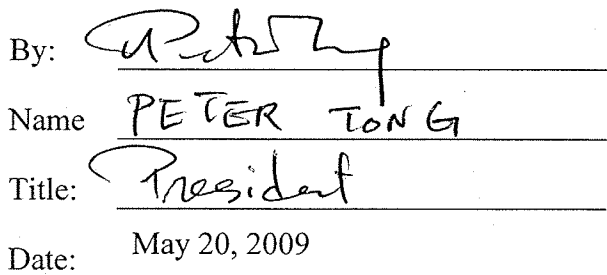 By:
Name PETER TONG
Title: President
Date: May 20, 2009